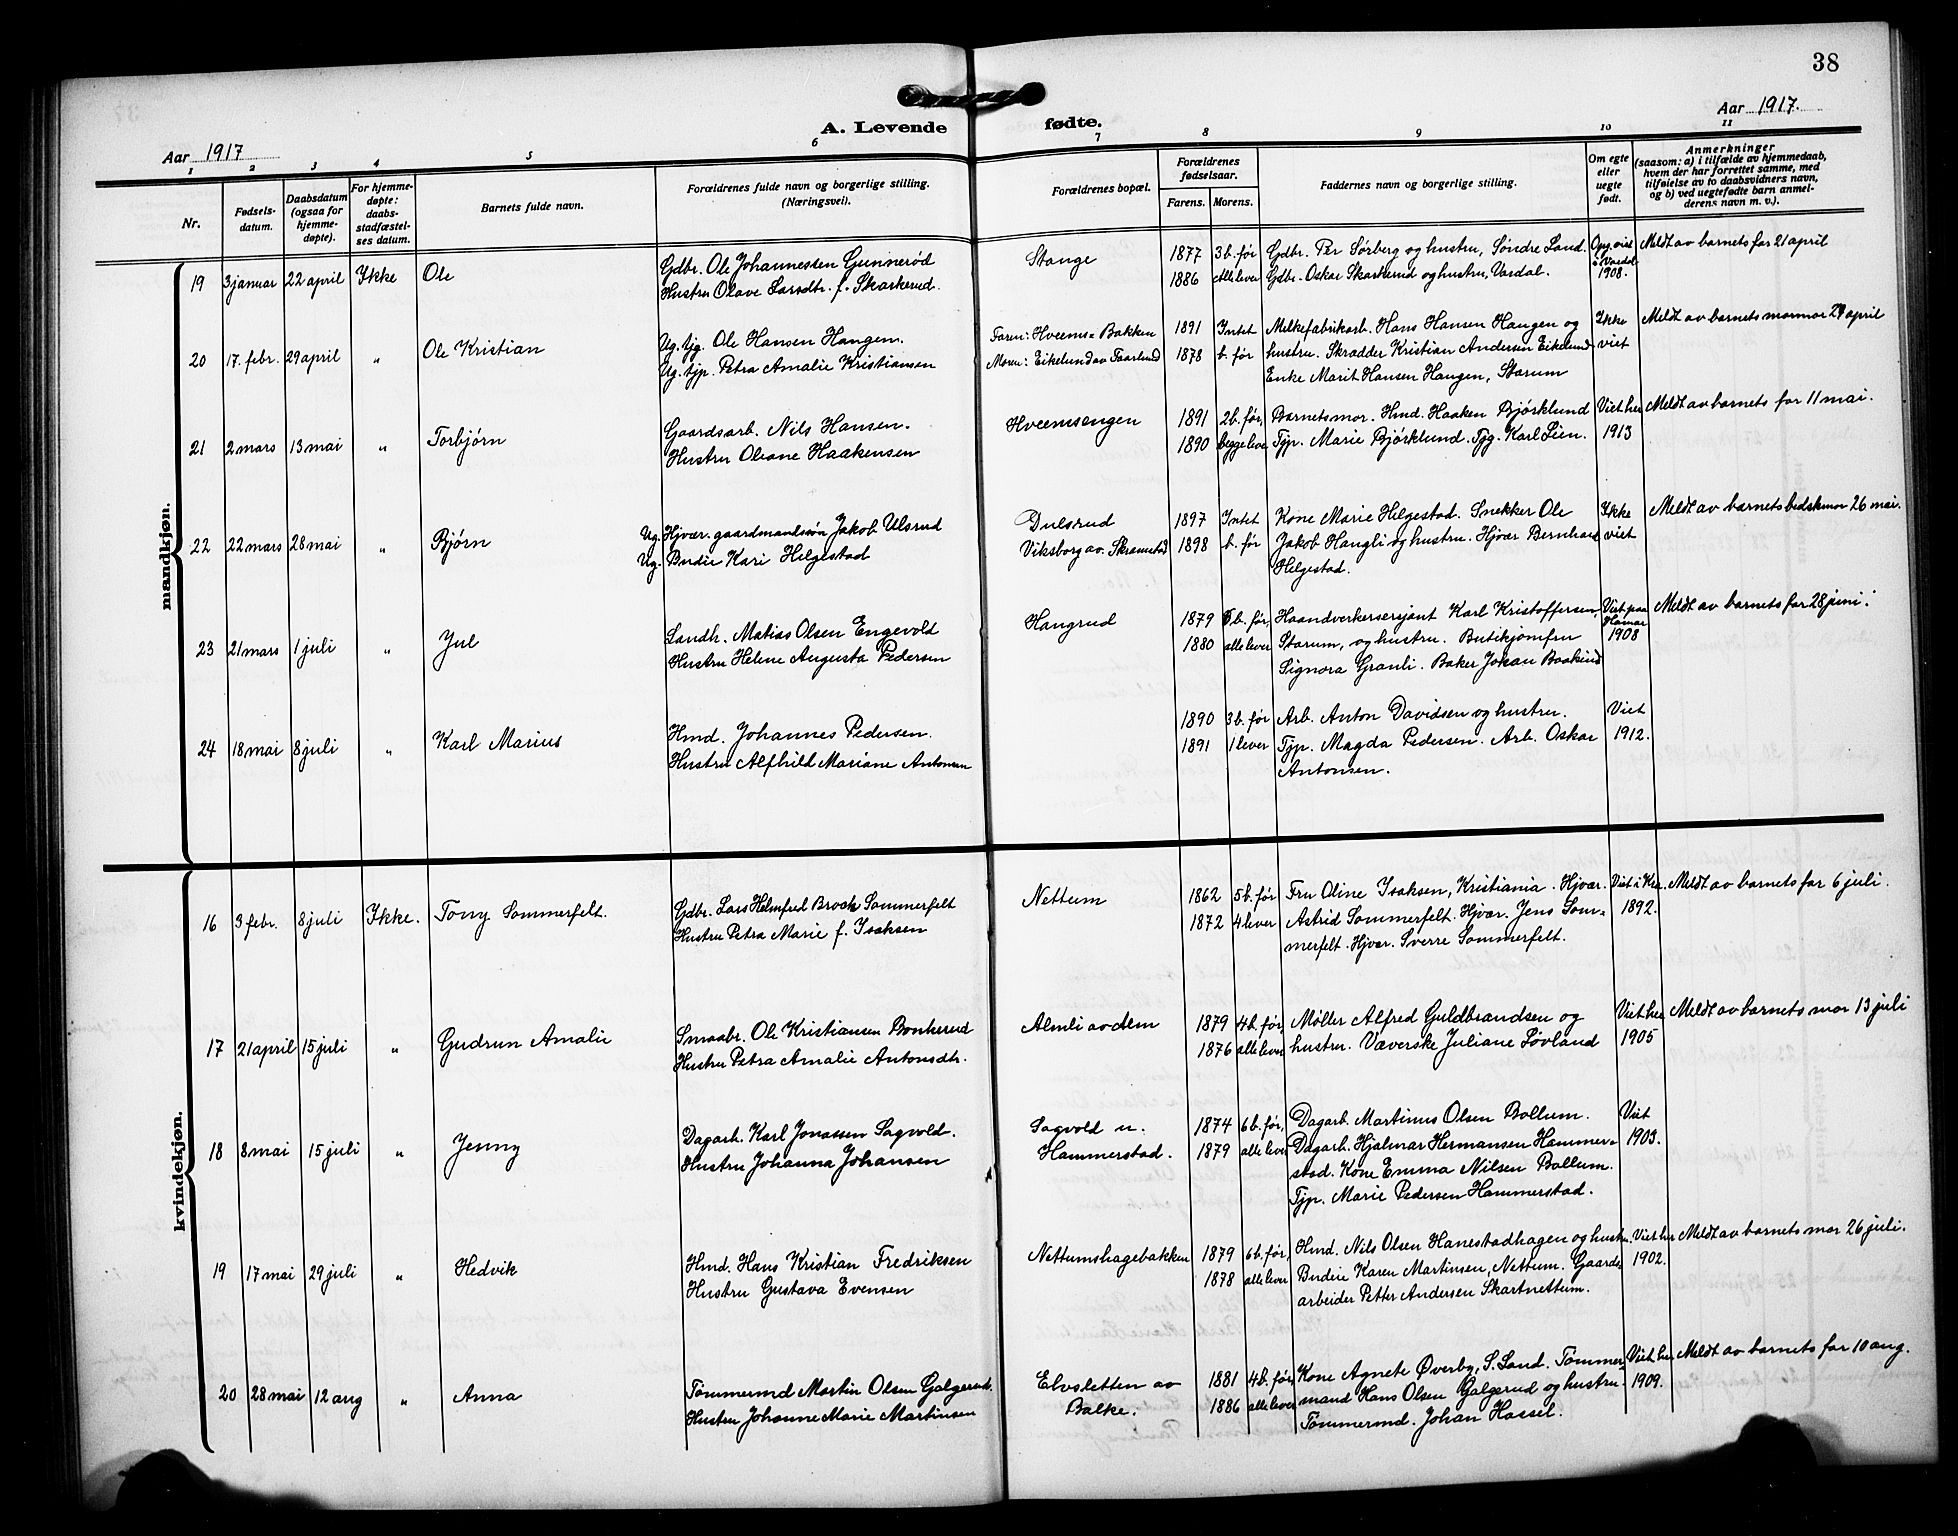 38
A. Levende fødte.
Aar 1917
Aar 1917.
1 2 3 4 5 6 7 8 9 10 11
Nr.
Fødsels-
datum.
Daabsdatum
(ogsaa for
hjemme-
døpte).
For hjemme-
døpte:
daabs-
stadfæstel-
ses datum.
Barnets fulde navn.
Forældrenes fulde navn og borgerlige stilling.
(Næringsvei).
Forældrenes bopæl.
Forældrenes
fødselsaar.
Farens. Morens.
Faddernes navn og borgerlige stilling.
Om egte
eller
uegte
født.
Anmerkninger
(saasom: a) i tilfælde av hjemmedaab,
hvem der har forrettet samme, med
tilføielse av to daabsvidners navn,
og b) ved uegtefødte barn anmel-
derens navn m. v.).
mandkjøn.
19 3 januar 22 april Ikke Ole
Gdbr. Ole Johannessen Gunnerød
Hustru Olave Larsdtr. f. Skarkerud.
Stange
1877 3 b. før
1886 alle lever
Gdbr. Per Sørberg og hustru, Søndre Land.
Gdbr. Oskar Skarkerud og hustru, Vardal.
Opg. viet
i Vardal
1908.
Meldt av barnets far 21 april
20 17. febr. 29 april " Ole Kristian
Ug. tjg. Ole Hansen Haugen.
Ug. tjp. Petra Amalie Kristiansen
Faren: Hveems-Bakken
Moren: Eikelund av Faarlund
1891 Intet
1878 b. før
Melkefabrikarb. Hans Hansen Haugen og
hustru. Skrædder Kristian Andersen Eikelund
Enke Marit Hansen Haugen, Starum
Ikke
viet
Meldt av barnets mormor 29 april
21 2 mars 13 mai " Torbjørn
Gaardsarb. Nils Hansen.
Hustru Oleane Haakensen
Hveemsengen
1891 2 b. før,
1890 begge lever
Barnets mor. Hmd. Haaken Bjørklund
Tjp. Marie Bjørklund. Tjg. Karl Lien.
Viet her
1913
Meldt av barnets far 11 mai.
22 22 mars 28 mai " Bjørn
Ug. Hjvær. gaardmandssøn Jakob Ulsrud
Ug. Budeie Kari Helgestad
Dulsrud
Viksborg av. Skramstad
1897 Intet
1898 b. før
Kone Marie Helgestad. Snekker Ole
Jakob Haugli og hustru. Hjvær Bernhard
Helgestad.
Ikke
viet
Meldt av barnets bedstemor 26 mai.
23 21 mars 1 juli " Jul
Landh. Matias Olsen Engevold
Hustru Helene Augusta Pedersen
Haugrud
1879 5 b. før,
1880 alle lever
Haandverkersersjant Karl Kristoffersen,
Starum, og hustru. Butikjomfru
Signora Granli. Baker Johan Baakind
Viet paa
Hamar
1908
Meldt av barnets far 28 juni.
24 18 mai 8 juli " Karl Marius
Hmd. Johannes Pedersen.
Hustru Alfhild Mariane Antonsen
1890 3 b. før
1891 1 lever
Arb. Anton Davidsen og hustru.
Tjp. Magda Pedersen. Arb. Oskar
Antonsen.
Viet
1912.
kvindekjøn.
16 3 febr. 8 juli Ikke. Tony Sommerfelt.
Gdbr. Lars Helmfred Brock Sommerfelt
Hustru Petra Marie f. Isaksen
Nettum
1862 5 b. før
1872 4 lever
Fru Oline Isaksen, Kristiania. Hjvær.
Astrid Sommerfelt. Hjvær. Jens Som-
merfelt. Hjvær. Sverre Sommerfelt.
Viet i Kra
1892.
Meldt av barnets far 6 juli.
17 21 april 15 juli " Gudrun Amalie
Smaabr. Ole Kristiansen Bonkerud
Hustru Petra Amalie Antonsdtr.
Almli av dem
1879 4 b. før
1876 alle lever
Møller Alfred Guldbrandsen og
hustru. Væverske Juliane Løvland
Viet her
1905
Meldt av barnets mor 13 juli
18 8 mai 15 juli " Jenny
Dagarb. Karl Jonassen Sagvold.
Hustru Johanna Johansen
Sagvold u.
Hammerstad.
1874 6 b. før,
1879 alle lever
Dagarb. Martinus Olsen Bollum.
Dagarb. Hjalmar Hermansen Hammer-
stad. Kone Emma Nilsen Bollum.
Tjp. Marie Pedersen Hammerstad.
Viet
1903.
19 17 mai 29 juli " Hedvik
Hmd. Hans Kristian Fredriksen
Hustru Gustava Evensen
Nettumshagebakken
1879 6 b. før,
1878 alle lever
Hmd. Nils Olsen Hanestadhagen og hustru.
Budeie Karen Martinsen, Nettum. Gaards-
arbeider Petter Andersen Skartnettum.
Viet her
1902.
Meldt av barnets mor 26 juli.
20 28 mai 12 aug " Anna
Tømmermd Martin Olsen Galgerud.
Hustru Johanne Marie Martinsen
Elvsletten av
Balke.
1881 4 b. før
1886 alle lever
Kone Agnete Øverby, S. Land. Tømmer-
mand Hans Olsen Galgerud og hustru
Tømmermd. Johan Hassel.
Viet her
1909.
Meldt av barnets far 10 aug.